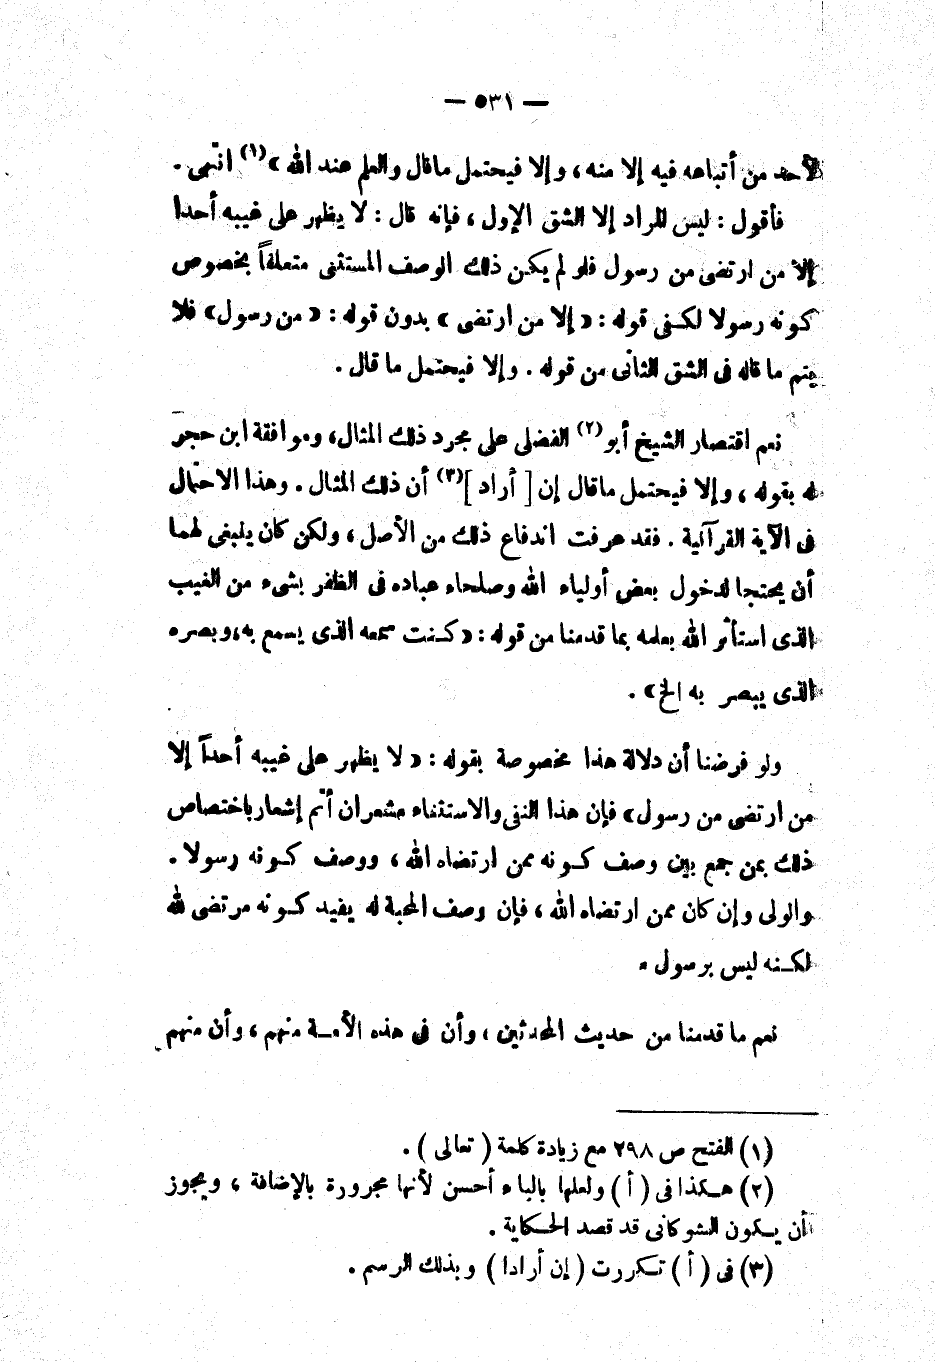 — ٥٣١ —
لأحد من أتباعه فيه إلا منه ، وإلا فيحتمل ماقال والعلم عند الله »(١) انتهى .
فأقول : ليس المراد إلا الشق الإول ، فإنه قال : لا يظهر على غيبه أحدا
إلا من ارتضى من رسول فلو لم يكن ذلك الوصف المستثنى متعلقاً بخصوص
كونه رسولا لكفى قوله : « إلا من ارتضى » بدون قوله : « من رسول » فلا
يتم ما قاله فى الشق الثانى من قوله . وإلا فيحتمل ما قال .
نعم اقتصار الشيخ أبو(٢) الفضل على مجرد ذلك المثال ، وموافقة ابن حجر
له بقوله ، وإلا فيحتمل ماقال إن [ أراد ](٣) أن ذلك المثال . وهذا الاحتمال
فى الآية القرآنية . فقد عرفت اندفاع ذلك من الأصل ، ولكن كان ينبغى لهما
أن يحتجا لدخول بعض أولياء الله وصلحاء عباده فى الظفر بشىء من الغيب
الذى استأثر الله بعلمه بما قدمنا من قوله : « كنت سمعه الذى يسمع به ، وبصره
الذى يبصر به الخ » .
ولو فرضنا أن دلالة هذا مخصوصة بقوله : « لا يظهر على غيبه أحداً إلا
من ارتضى من رسول » فإن هذا النفى والاستثناء مشعران أتم إشعار باختصاص
ذلك بمن جمع بين وصف كونه ممن ارتضاه الله ، ووصف كونه رسولا .
والولى وإن كان ممن ارتضاه الله ، فإن وصف المحبة له يفيد كونه مرتضى لله
لكنه ليس برسول .
نعم ما قدمنا من حديث المحدثين ، وأن فى هذه الأمة منهم ، وأن منهم
(١) الفتح ص ٢٩٨ مع زيادة كلمة ( تعالى ) .
(٢) هكذا فى ( أ ) ولعلها بالياء أحسن لأنها مجرورة بالإضافة ، ويجوز
أن يكون الشوكانى قد قصد الحكاية .
(٣) فى ( أ ) تكررت ( إن أرادا ) وبذلك الرسم .